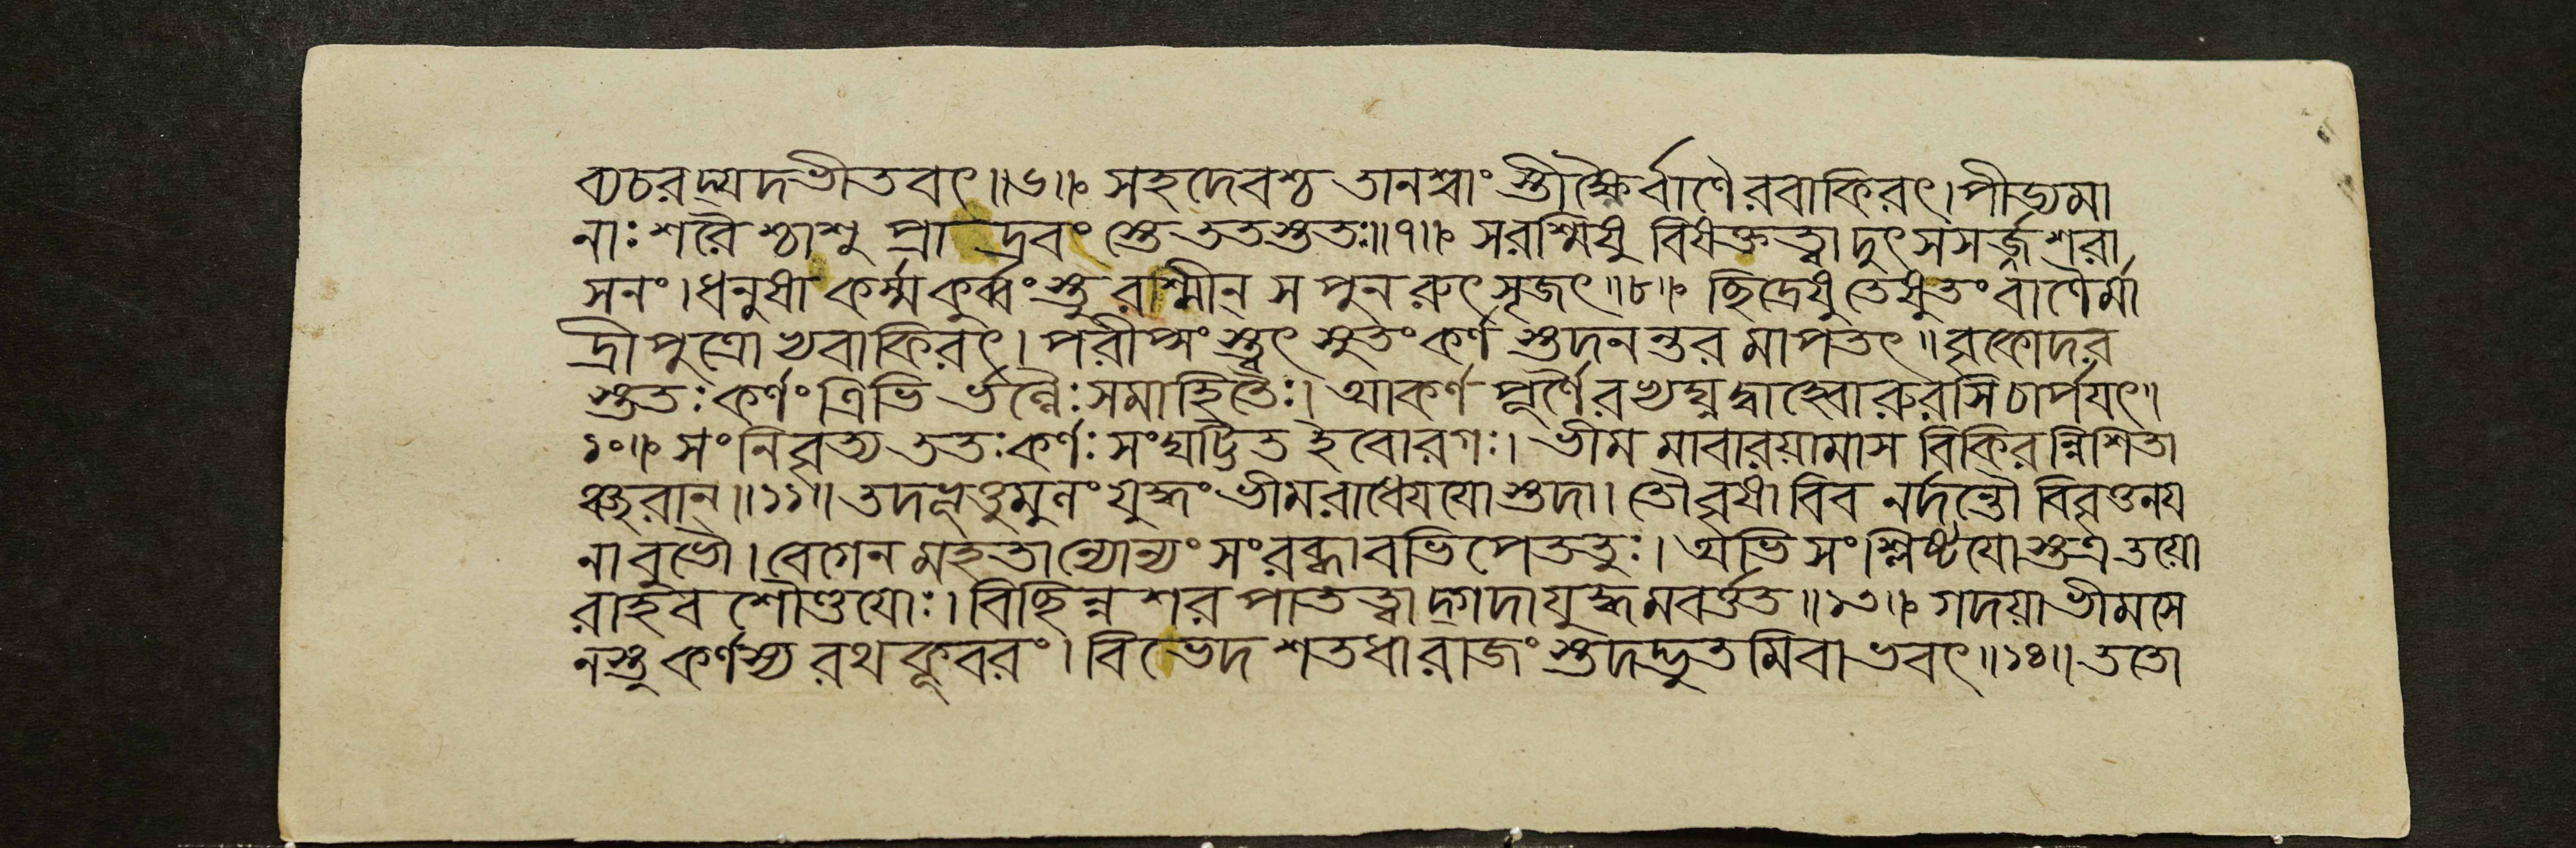 ব্যচরদ্যদভীতবৎ॥৬॥ সহদেবশ্চ তানশ্বাংস্তীক্ষ্ণৈর্বাণৈরবাকিরৎ।পীড্যমা
নাঃ শরৈশ্চাশু প্রাদ্রবংস্তে ততস্ততঃ॥৭॥ স রশ্মিষু বিষক্তত্বাদুৎসসর্জ্জ শরা
সনং। ধনুষা কর্ম্ম কুর্ব্বংস্তু রশ্মীন্ স পুনরুৎসৃজৎ॥৮॥ ছিদ্রেষু তেষু তং বাণৈর্মা
দ্রীপুত্রোভ্যবাকিরৎ। পরীপ্সংস্ত্বৎসুতং কর্ণস্তদনন্তরমাপতৎ॥ বৃকোদর
স্ততঃ কর্ণং ত্রিভির্ভল্লৈঃ সমাহিতৈঃ। আকর্ণপূর্ণৈরভ্যঘ্নদ্বাহ্বোরুরসি চার্পয়ৎ॥
১০॥ সংনিবৃত্য ততঃ কর্ণঃ সংঘট্টিত ইবোরগঃ। ভীমমাবারয়ামাস বিকিরন্নিশিতা
ঞ্ছরান্॥১১॥ তদভূত্তুমুলং যুদ্ধং ভীমরাধেয়য়োস্তদা। তৌ বৃষাবিব নর্দন্তৌ বিবৃত্তনয়
নাবুভৌ। বেগেন মহতান্যোন্যং সংরব্ধাবভিপেততুঃ। অভিসংশ্লিষ্টয়োস্তত্র তয়ো
রাহবশৌণ্ডয়োঃ। বিছিন্নশরপাতত্বাদ্গদাযুদ্ধমবর্ত্তত॥১৩॥ গদয়া ভীমসে
নস্তু কর্ণস্য রথকূবরং। বিভেদ শতধা রাজংস্তদদ্ভুতমিবাভবৎ॥১৪॥ ততো